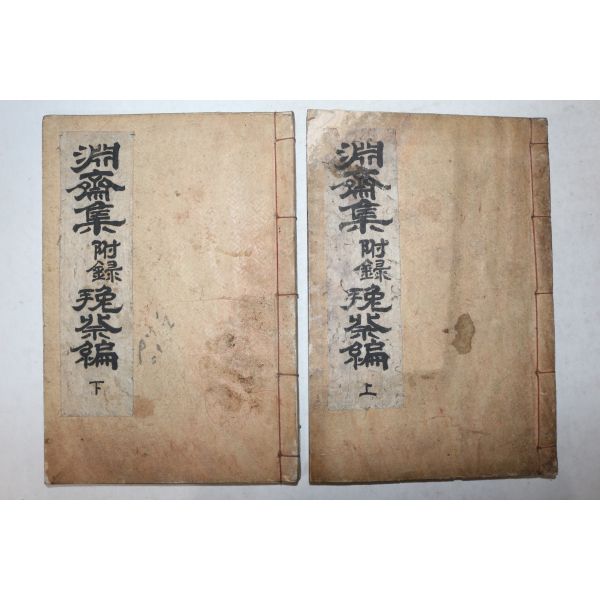 淵齋集附錄挽祭編上
淵齋集附錄挽祭編下